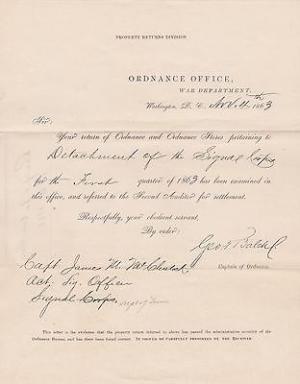 PROPERTY RETURNS DIVISION
ORDNANCE OFFICE,
WAR DEPARTMENT,
Washington, D. C., Nov 4th 1863
Sir:
Your return of Ordnance and Ordnance Stores pertaining to
Detachment of the Signal Corps
for the First quarter of 1863 has been examined in
this office, and referred to the Second Auditor for settlement.
Respectfully, your obedient servant,
By order:
Geo. T. Balch
Captain of Ordnance.
Capt James M. McClintock
Act. Sig. Officer
Signal Corps
This letter is the evidence that the property return referred to above has passed the administrative scrutiny of the
Ordnance Bureau, and has there been found correct. IT SHOULD BE CAREFULLY PRESERVED BY THE RECEIVER.